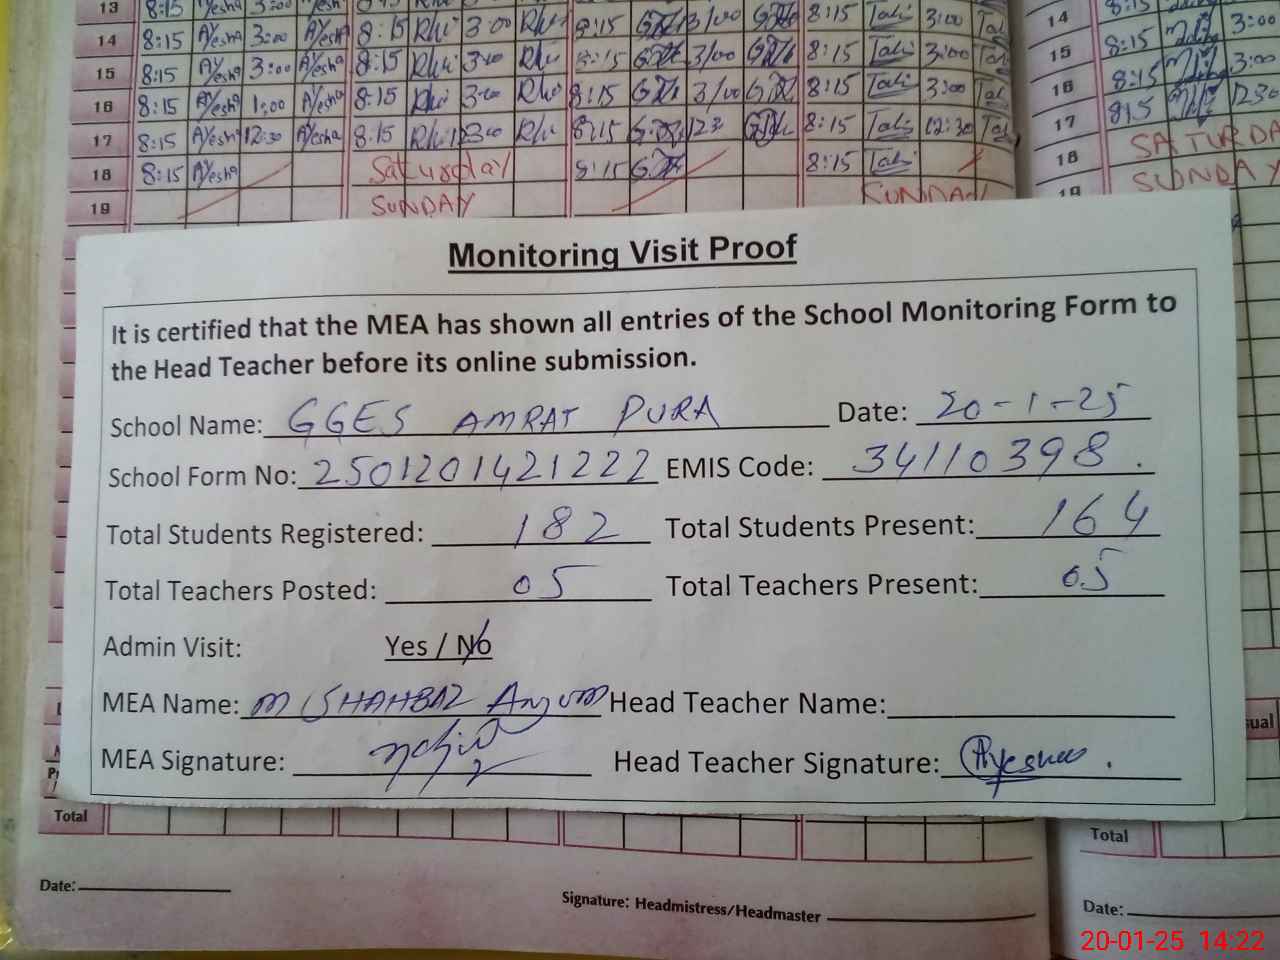 13 8:15 Ayesha 3:00 Ayesh
14 8:15 Ayesha 3:00 Ayesha 8:15 Rhi 3:00 Rhi 8:15 3/00 8:15 Tahi 3:00 Tal 14 8:15 3:00
15 8:15 Ayesha 3:00 Ayesha 8:15 Rhi 3:00 Rhi 8:15 3/00 8:15 Tahi 3:00 Tal 15 8:15 3:00
16 8:15 Ayesha 1:00 Ayesha 8:15 Rhi 3:00 Rhi 8:15 3/00 8:15 Tahi 3:00 Tal 16 8:15 3:00
17 8:15 Ayesha 12:30 Ayesha 8:15 Rhi 1230 Rhi 8:15 123 8:15 Tahi 12:30 Tal 17 815 1230
18 8:15 Ayesha Saturday 8:15 8:15 Tahi 18 SATURDA
19 SUNDAY SUNDAY 19 SUNDAY
Monitoring Visit Proof
It is certified that the MEA has shown all entries of the School Monitoring Form to
the Head Teacher before its online submission.
School Name: GGES AMRAT PURA Date: 20-1-25
School Form No: 2501201421222 EMIS Code: 34110398.
Total Students Registered: 182 Total Students Present: 164
Total Teachers Posted: 05 Total Teachers Present: 05
Admin Visit: Yes / No
MEA Name: M SHAHBAZ Anjum Head Teacher Name:
MEA Signature: Head Teacher Signature: Ayesha .
sual
Total Total
Date: Signature: Headmistress/Headmaster Date:
20-01-25 14:22